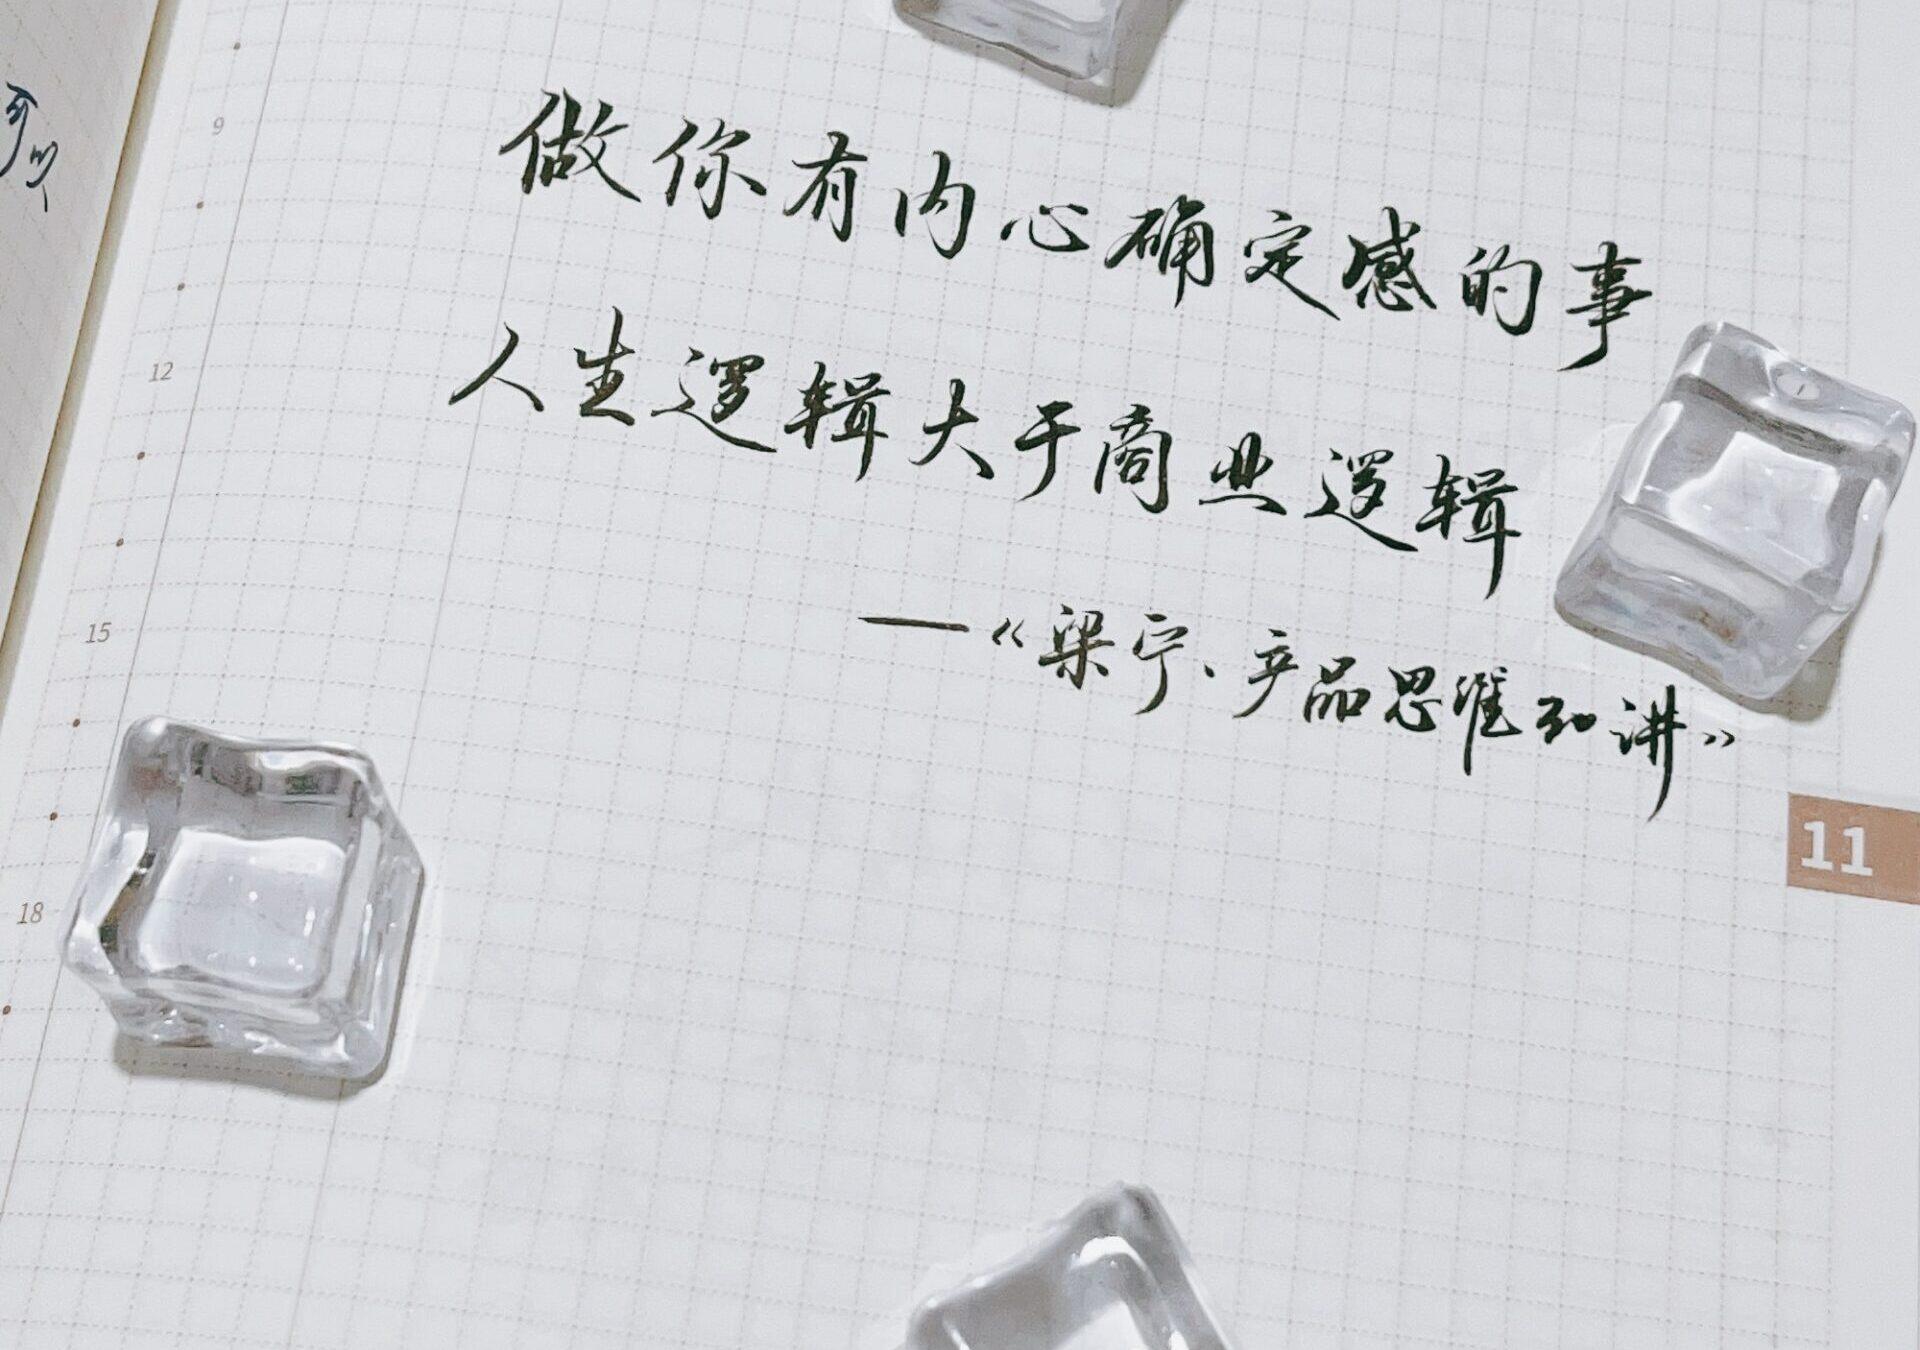 可以
9
做你有内心确定感的事
12
人生逻辑大于商业逻辑
15
—《梁宁·产品思维30讲》
11
18